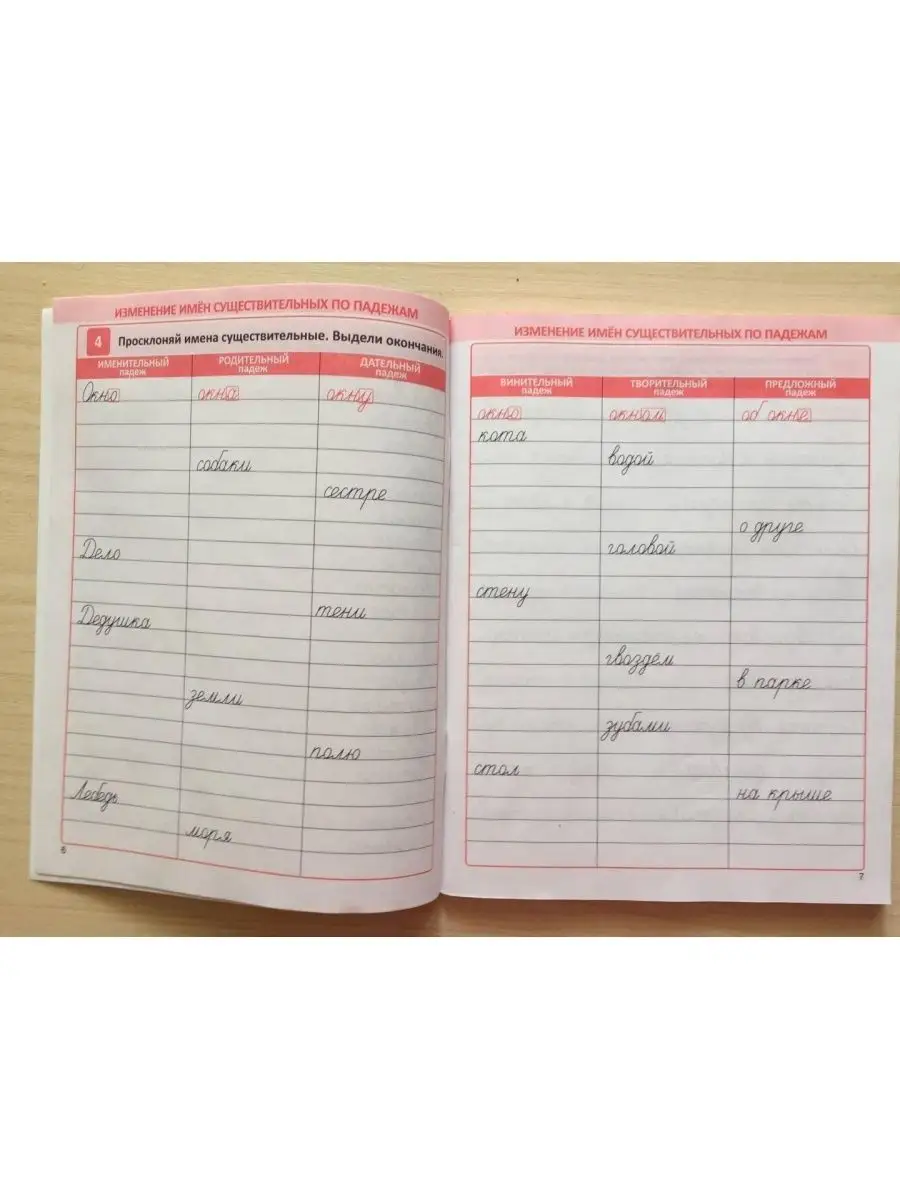 ИЗМЕНЕНИЕ ИМЁН СУЩЕСТВИТЕЛЬНЫХ ПО ПАДЕЖАМ
4 Просклоняй имена существительные. Выдели окончания.
ИМЕНИТЕЛЬНЫЙ падеж РОДИТЕЛЬНЫЙ падеж ДАТЕЛЬНЫЙ падеж
Окно окна окну
собаки
сестре
Дело
тени
Дедушка
земли
полю
Лебедь
моря
6
ИЗМЕНЕНИЕ ИМЁН СУЩЕСТВИТЕЛЬНЫХ ПО ПАДЕЖАМ
ВИНИТЕЛЬНЫЙ падеж ТВОРИТЕЛЬНЫЙ падеж ПРЕДЛОЖНЫЙ падеж
окно окном об окне
кота
водой
о друге
головой
стену
гвоздём
в парке
зубами
стол
на крыше
7